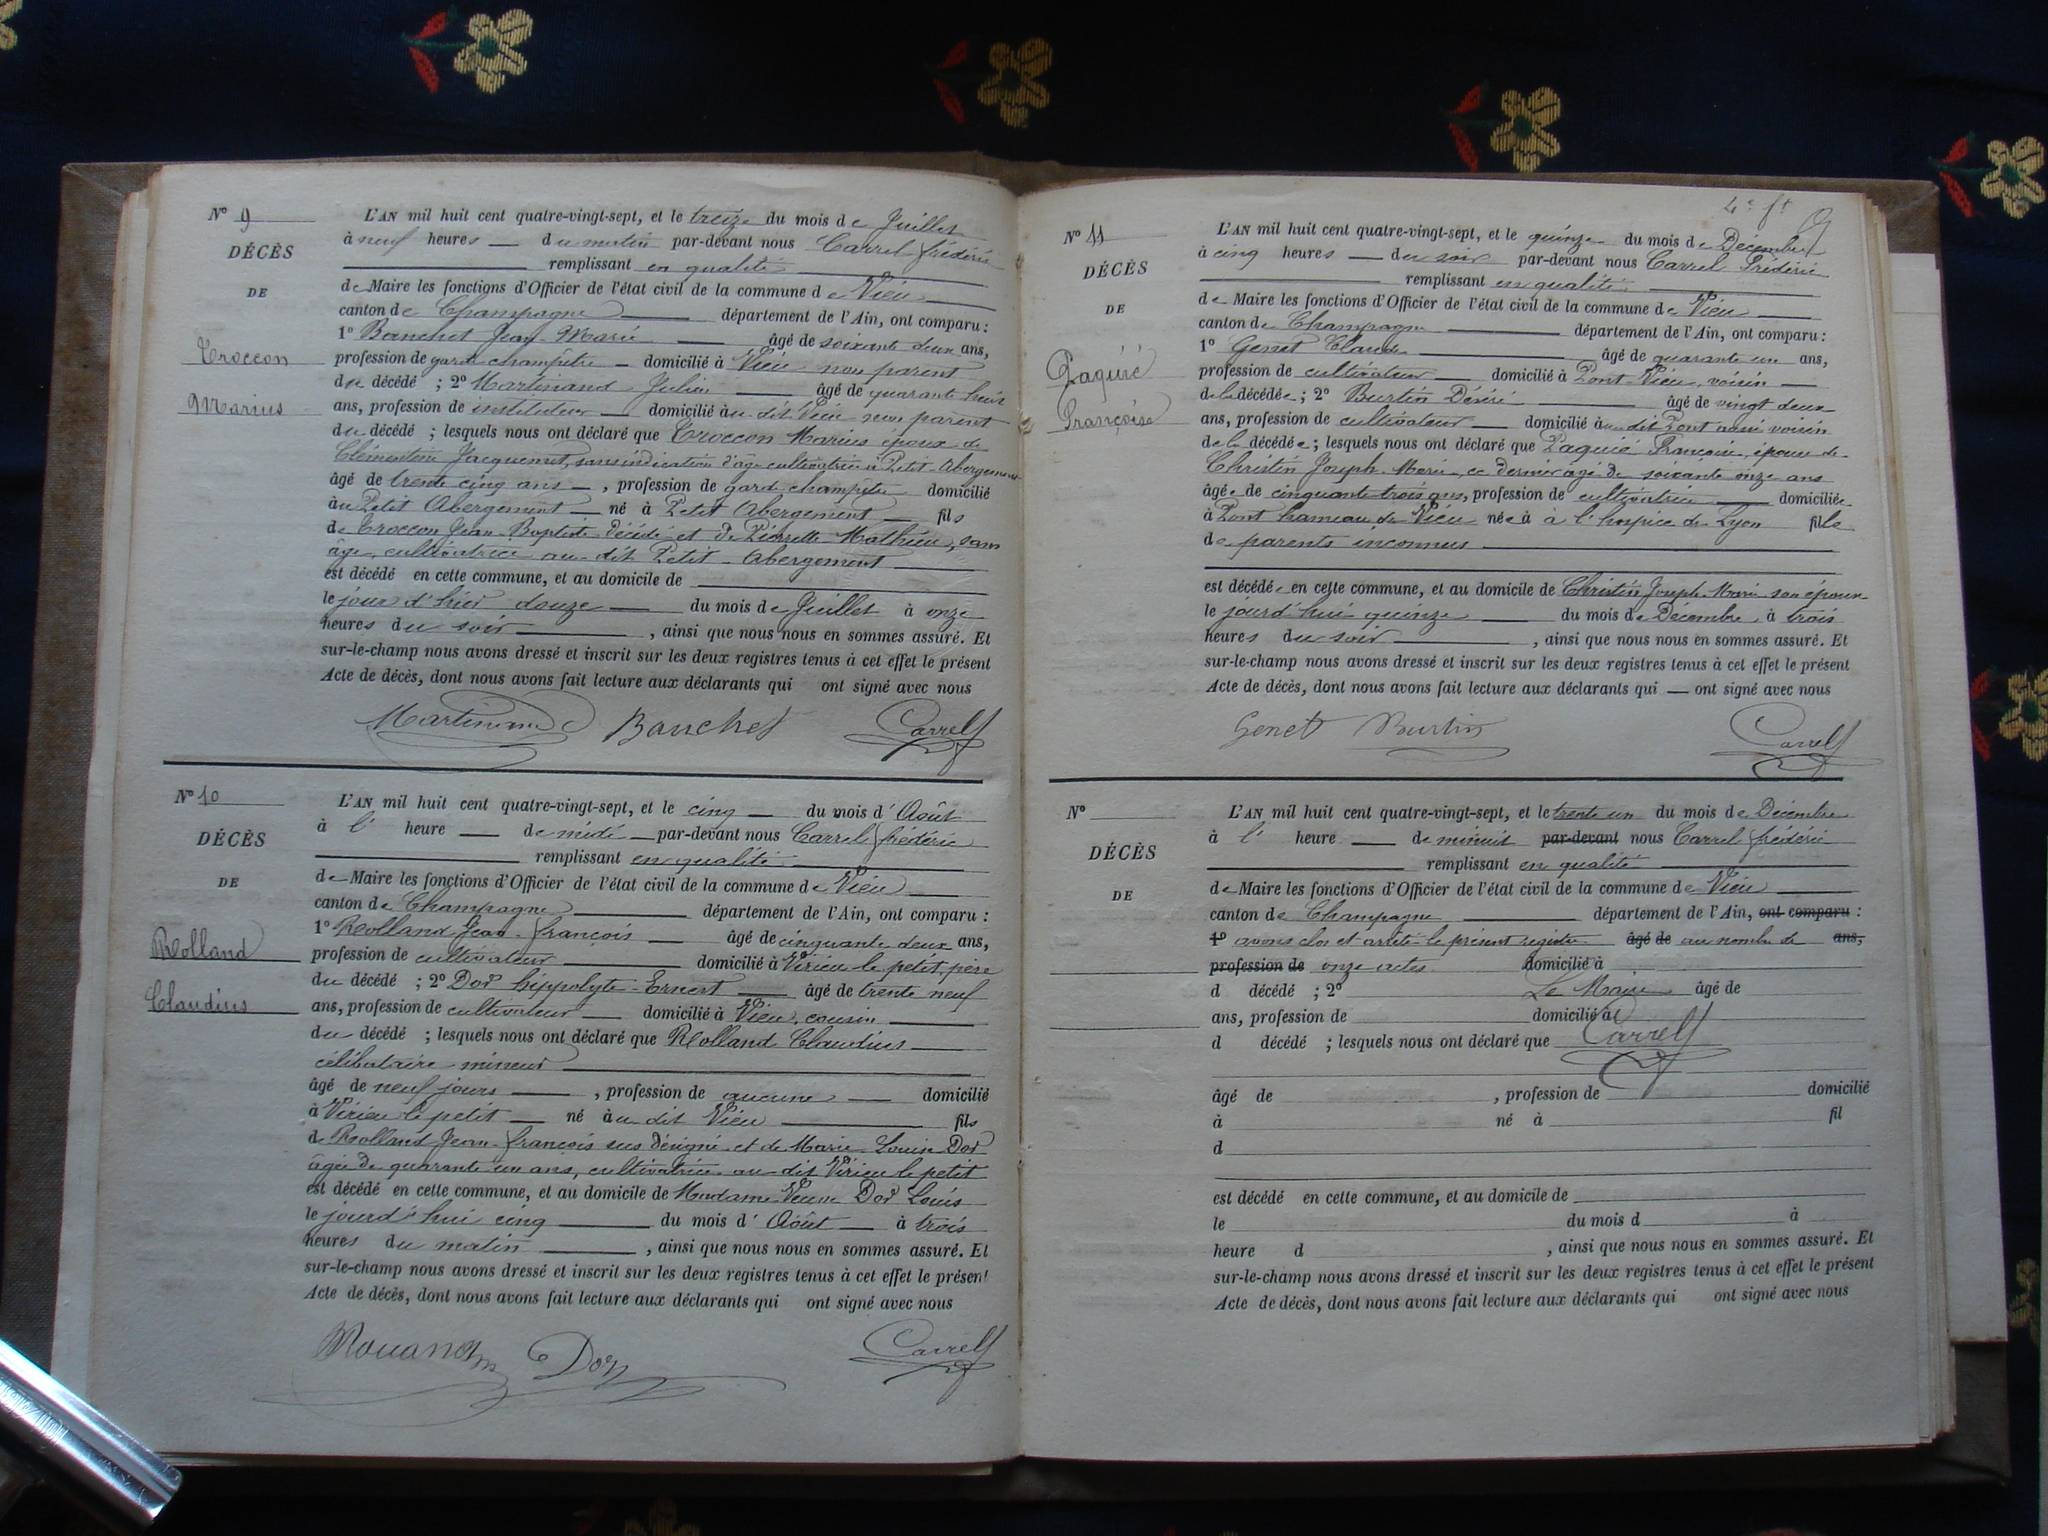 N° 9
DÉCÈS
DE
Troccon
Marius
L'AN mil huit cent quatre-vingt-sept, et le treize du mois de Juillet
à neuf heures du matin par-devant nous Carrel frédéric
remplissant en qualité
de Maire les fonctions d'Officier de l'état civil de la commune de Vieu
canton de Champagne département de l'Ain, ont comparu :
1° Banchet Jean Marie âgé de soixante deux ans,
profession de garde champêtre domicilié à Vieu non parent
du décédé ; 2° Martinand Julien âgé de quarante huit
ans, profession de instituteur domicilié au dit Vieu non parent
du décédé ; lesquels nous ont déclaré que Troccon Marius époux de
Clémentine Jacquemet, sans indication d'âge cultivatrice à Petit Abergement
âgé de trente cinq ans, profession de garde champêtre domicilié
au Petit Abergement né à Petit Abergement fils
de Troccon Jean Baptiste décédé et de Pierrette Mathieu, sans
âge, cultivatrice au dit Petit Abergement
est décédé en cette commune, et au domicile de
le jour d'hier douze du mois de Juillet à onze
heures du soir, ainsi que nous nous en sommes assuré. Et
sur-le-champ nous avons dressé et inscrit sur les deux registres tenus à cet effet le présent
Acte de décès, dont nous avons fait lecture aux déclarants qui ont signé avec nous
Martinand Banchet Carrel f
N° 10
DÉCÈS
DE
Rolland
Claudius
L'AN mil huit cent quatre-vingt-sept, et le cinq du mois d'Août
à l' heure de midi par-devant nous Carrel frédéric
remplissant en qualité
de Maire les fonctions d'Officier de l'état civil de la commune de Vieu
canton de Champagne département de l'Ain, ont comparu :
1° Rolland Jean-françois âgé de cinquante deux ans,
profession de cultivateur domicilié à Virieu le petit, père
du décédé ; 2° Dor hippolyte-Ernest âgé de trente neuf
ans, profession de cultivateur domicilié à Vieu, cousin
du décédé ; lesquels nous ont déclaré que Rolland Claudius
célibataire mineur
âgé de neuf jours, profession de aucune domicilié
à Virieu le petit né au dit Vieu fils
de Rolland Jean-françois sus désigné et de Marie-Louise Dor
âgée de quarante un ans, cultivatrice au dit Virieu le petit
est décédé en cette commune, et au domicile de Madame Veuve Dor Louis
le jourd'hui cinq du mois d'Août à trois
heures du matin, ainsi que nous nous en sommes assuré. Et
sur-le-champ nous avons dressé et inscrit sur les deux registres tenus à cet effet le présent
Acte de décès, dont nous avons fait lecture aux déclarants qui ont signé avec nous
Dor Carrel f
N° 11
DÉCÈS
DE
Paquié
Françoise
L'AN mil huit cent quatre-vingt-sept, et le quinze du mois de Décembre
à cinq heures du soir par-devant nous Carrel Frédéric
remplissant en qualité
de Maire les fonctions d'Officier de l'état civil de la commune de Vieu
canton de Champagne département de l'Ain, ont comparu :
1° Genet Claude âgé de quarante un ans,
profession de cultivateur domicilié à Pont-Vieu, voisin
de la décédée ; 2° Burtin Désiré âgé de vingt deux
ans, profession de cultivateur domicilié au dit Pont aussi voisin
de la décédée ; lesquels nous ont déclaré que Paquié Françoise, épouse de
Christin Joseph-Marie, ce dernier âgé de soixante onze ans
âgée de cinquante trois ans, profession de cultivatrice domiciliée
à Pont hameau de Vieu née à à l'hospice de Lyon fille
de parents inconnus
est décédée en cette commune, et au domicile de Christin Joseph-Marie son époux
le jourd'hui quinze du mois de Décembre à trois
heures du soir, ainsi que nous nous en sommes assuré. Et
sur-le-champ nous avons dressé et inscrit sur les deux registres tenus à cet effet le présent
Acte de décès, dont nous avons fait lecture aux déclarants qui ont signé avec nous
Genet Burtin Carrel f
N°
DÉCÈS
DE
L'AN mil huit cent quatre-vingt-sept, et le trente un du mois de Décembre
à l' heure de minuit par-devant nous Carrel frédéric
remplissant en qualité
de Maire les fonctions d'Officier de l'état civil de la commune de Vieu
canton de Champagne département de l'Ain, ont comparu :
1° avons clos et arrêté le présent registre âgé de au nombre de ans,
profession de onze actes domicilié à
d décédé ; 2° Le Maire âgé de
ans, profession de domicilié à
d décédé ; lesquels nous ont déclaré que Carrel f
âgé de , profession de domicilié
à né à fil
d
est décédé en cette commune, et au domicile de
le du mois d à
heure d , ainsi que nous nous en sommes assuré. Et
sur-le-champ nous avons dressé et inscrit sur les deux registres tenus à cet effet le présent
Acte de décès, dont nous avons fait lecture aux déclarants qui ont signé avec nous